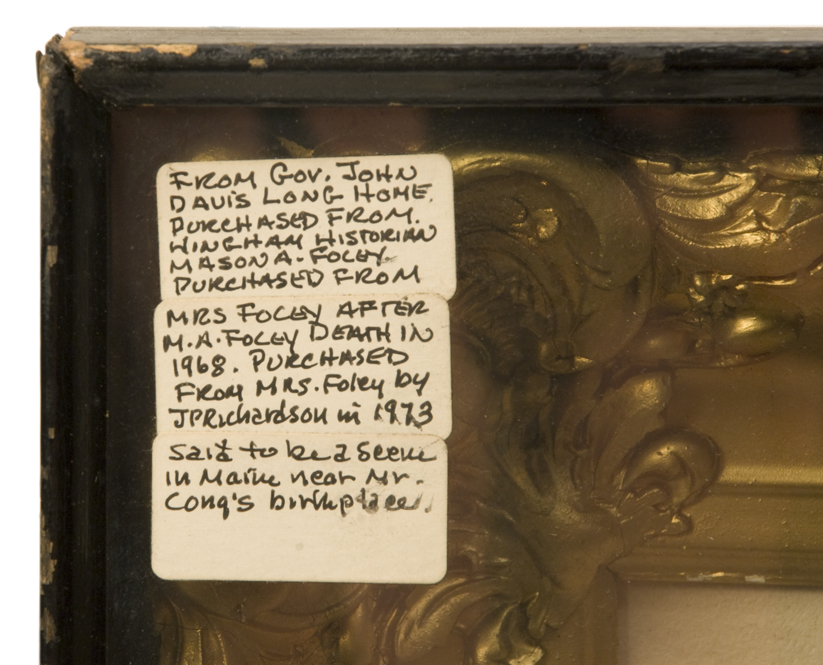 FROM GOV. JOHN
DAVIS LONG HOME.
PURCHASED FROM.
HINGHAM HISTORIAN
MASON A. FOLEY
PURCHASED FROM
MRS FOLEY AFTER
M.A. FOLEY DEATH IN
1968. PURCHASED
FROM MRS. Foley by
JPRichardson in 1973
Said to be a Scene
in Maine near Mr.
Long's birthplace.